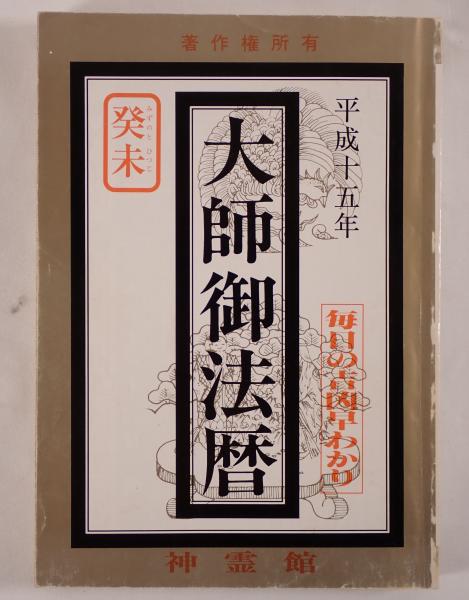 著作権所有
平成十五年
癸未
みずのと ひつじ
大師御法暦
毎日の吉凶早わかり
神霊館